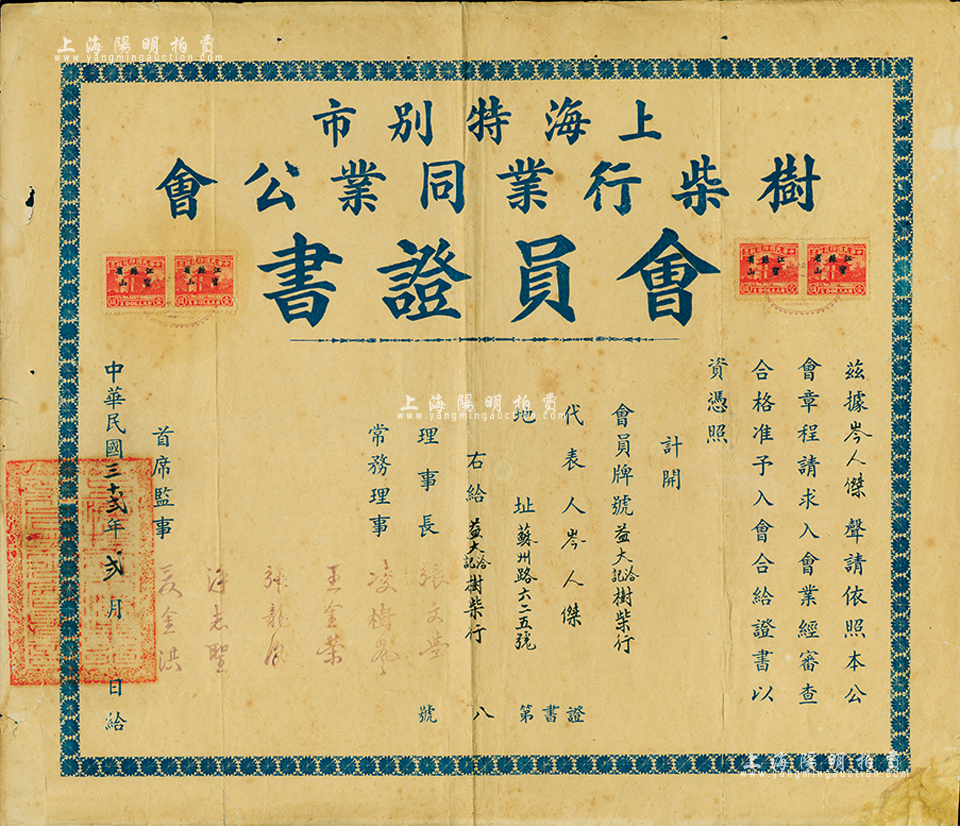 上海陽明拍賣
www.yangmingauction.com
上海特別市
樹柴行業同業公會
會員證書
江蘇省
寶山
江蘇省
寶山
江蘇省
寶山
江蘇省
寶山
1 DOLLAR
1 DOLLAR
1 DOLLAR
1 DOLLAR
茲據岑人傑聲請依照本公
會章程請求入會業經審查
合格准予入會合給證書以
資憑照
計開
會員牌號益大洽記樹柴行
代表人岑人傑
地址蘇州路六二五號
右給益大洽記樹柴行
理事長張文
常務理事凌樹
王金榮
張龍
許志聖
首席監事
金洪
中華民國三十弍年弍月日給
證書第八號
上海陽明拍賣
www.yangmingauction.com
上海陽明拍賣
www.yangmingauction.com